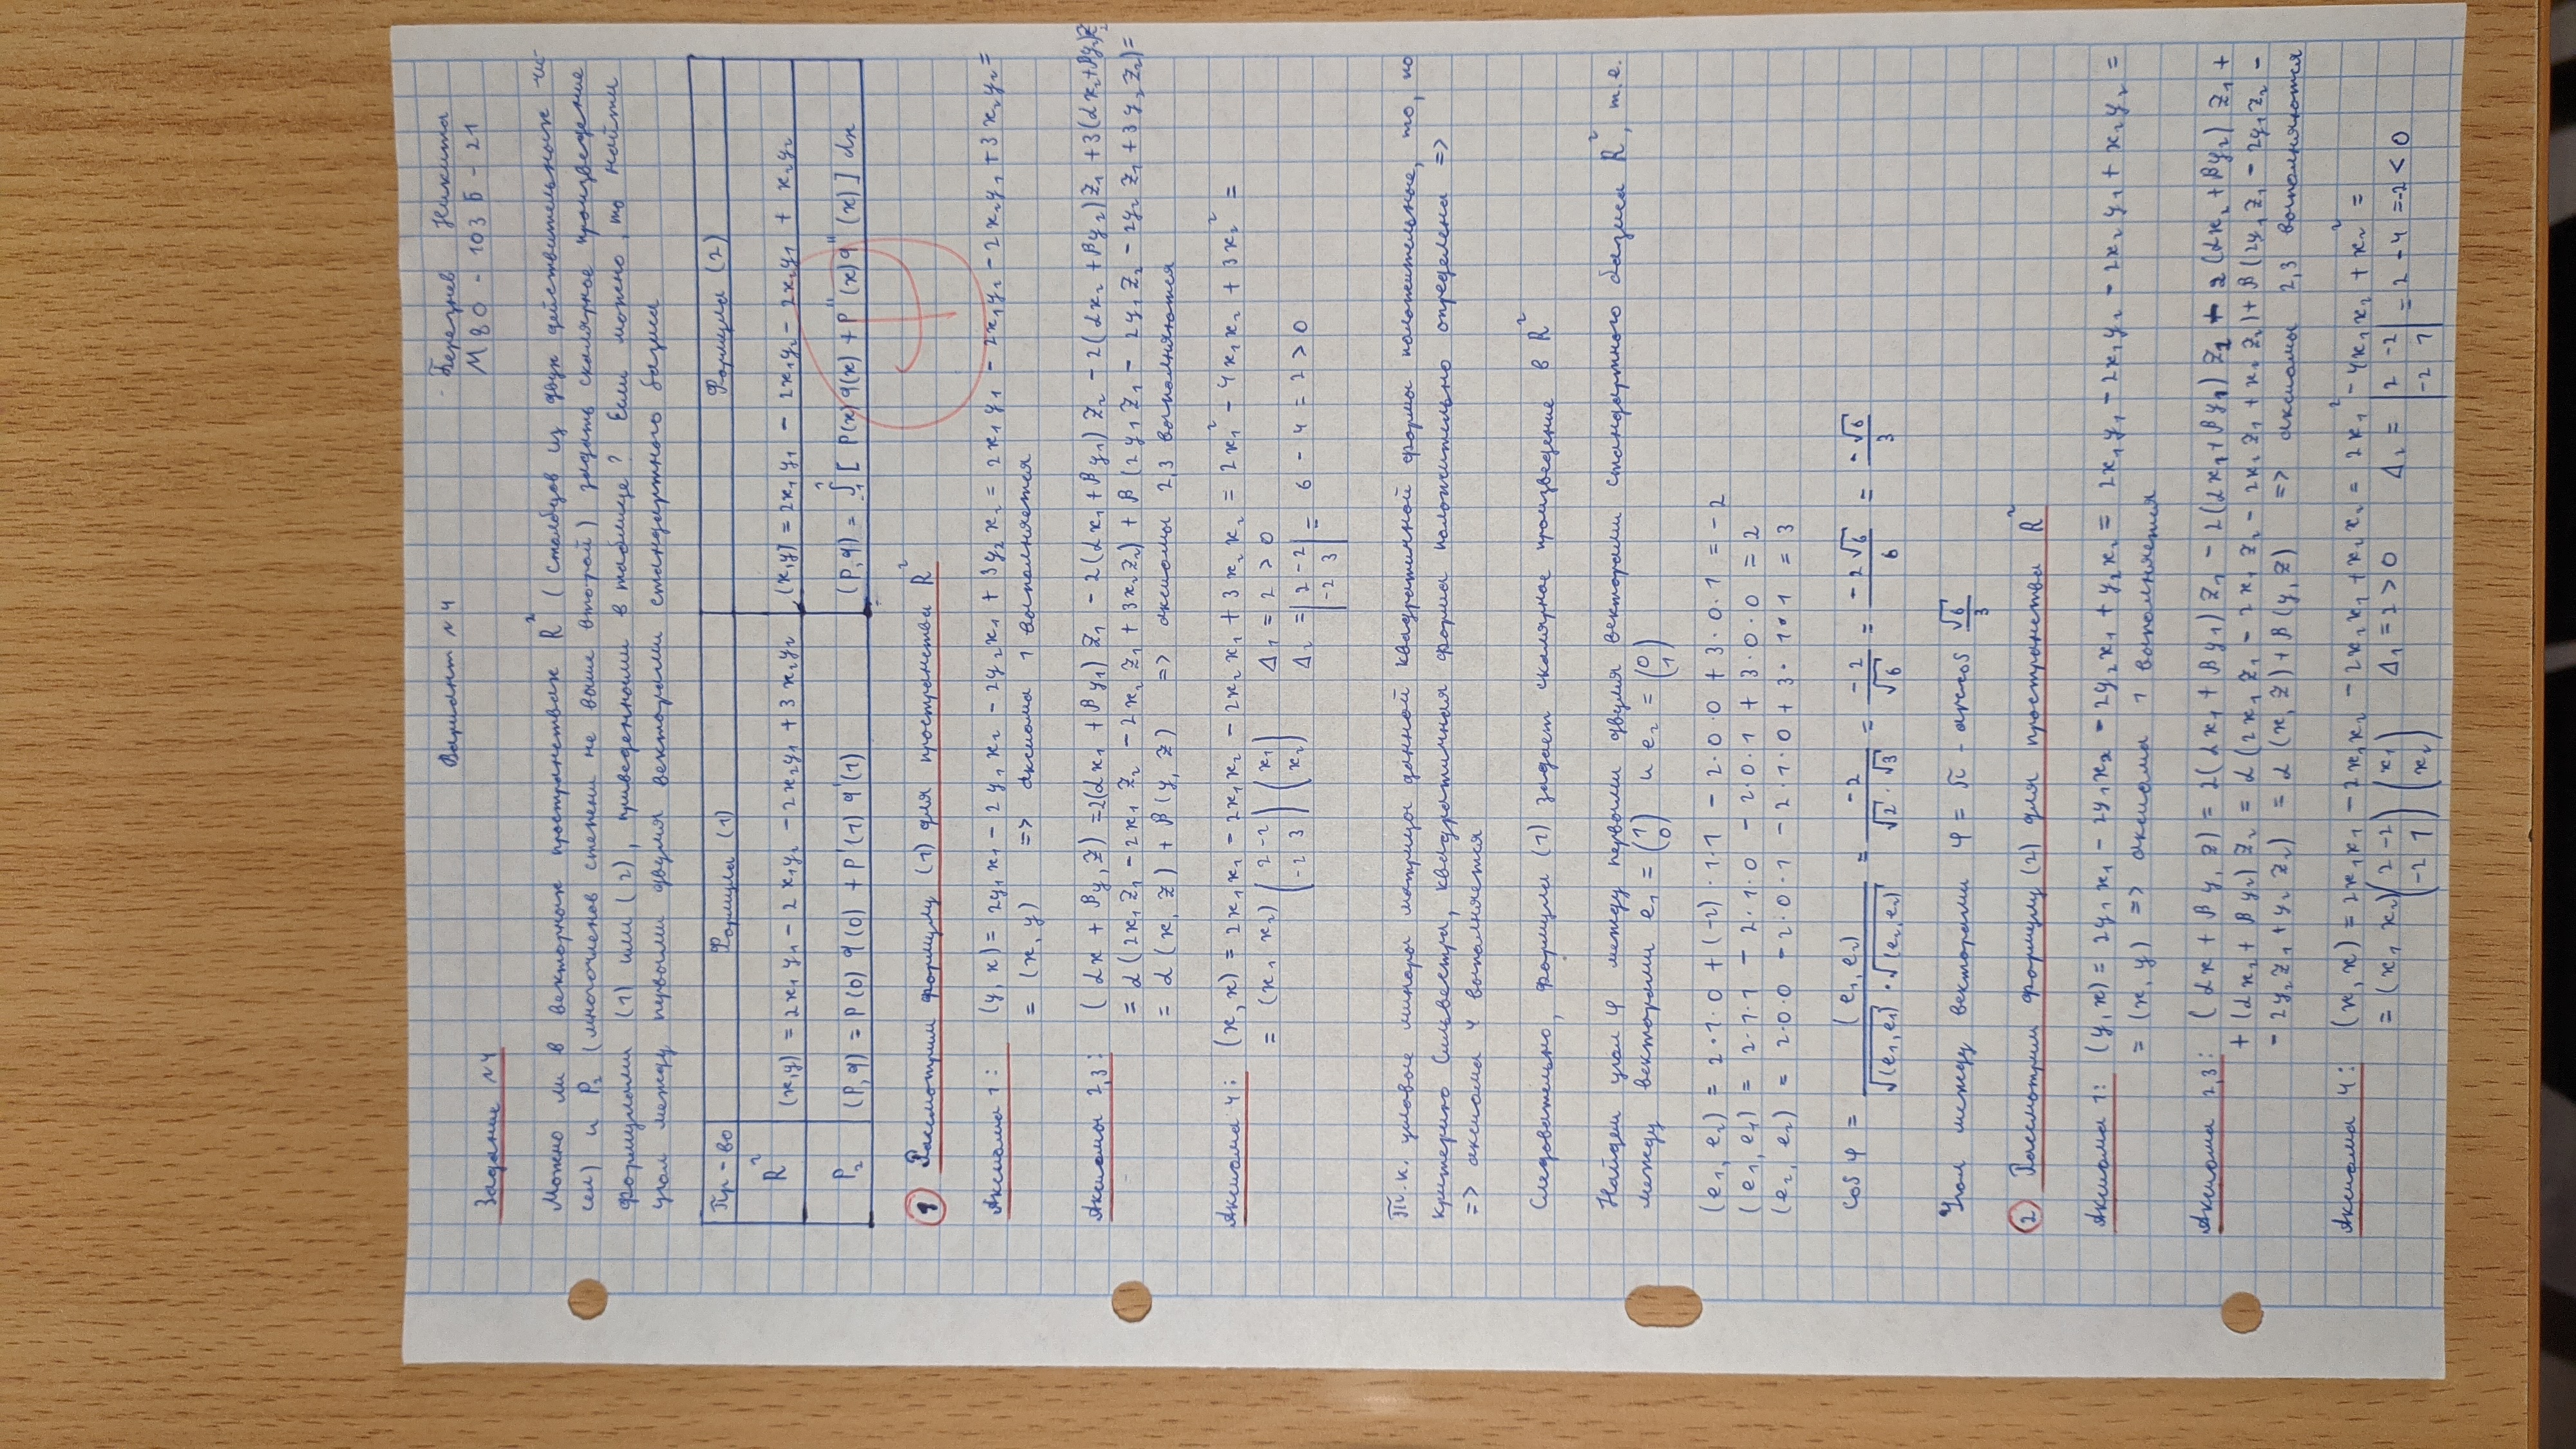 Вариант №4
Березнев Никита
М80 - 103Б - 21
Задание №4
Можно ли в векторных пространствах R² (столбцов из двух действительных чи-
сел) и P₂ (многочленов степени не выше второй) задать скалярное произведение
формулами (1) или (2), приведенными в таблице? Если можно, то найти
угол между первыми двумя векторами стандартного базиса
Пр-во Формула (1) Формула (2)
R² (x,y) = 2x₁y₁ - 2x₁y₂ - 2x₂y₁ + 3x₂y₂ (x,y) = 2x₁y₁ - 2x₁y₂ - 2x₂y₁ + x₂y₂
P₂ (p,q) = p(0) q(0) + p'(1) q'(1) (p,q) = ∫₋₁¹ [p(x)q(x) + p''(x)q''(x)] dx
1 Рассмотрим формулу (1) для пространства R²
Аксиома 1: (y,x) = 2y₁x₁ - 2y₁x₂ - 2y₂x₁ + 3y₂x₂ = 2x₁y₁ - 2x₁y₂ - 2x₂y₁ + 3x₂y₂ =
= (x,y) => аксиома 1 выполняется
Аксиомы 2,3: (αx + βy, z) = 2(αx₁ + βy₁)z₁ - 2(αx₁ + βy₁)z₂ - 2(αx₂ + βy₂)z₁ + 3(αx₂ + βy₂)z₂
= α(2x₁z₁ - 2x₁z₂ - 2x₂z₁ + 3x₂z₂) + β(2y₁z₁ - 2y₁z₂ - 2y₂z₁ + 3y₂z₂) =
= α(x,z) + β(y,z) => аксиомы 2,3 выполняются
Аксиома 4: (x,x) = 2x₁x₁ - 2x₁x₂ - 2x₂x₁ + 3x₂x₂ = 2x₁² - 4x₁x₂ + 3x₂² =
= (x₁ x₂) (2 -2; -2 3) (x₁; x₂) Δ₁ = 2 > 0
Δ₂ = |2 -2; -2 3| = 6 - 4 = 2 > 0
Т.к. угловые миноры матрицы данной квадратичной формы положительные, то, по
критерию Сильвестра, квадратичная форма положительно определена =>
=> аксиома 4 выполняется
Следовательно, формула (1) задает скалярное произведение в R²
Найдем угол φ между первыми двумя векторами стандартного базиса R², т.е.
между векторами e₁ = (1; 0) и e₂ = (0; 1)
(e₁, e₂) = 2·1·0 + (-2)·1·1 - 2·0·0 + 3·0·1 = -2
(e₁, e₁) = 2·1·1 - 2·1·0 - 2·0·1 + 3·0·0 = 2
(e₂, e₂) = 2·0·0 - 2·0·1 - 2·1·0 + 3·1·1 = 3
cos φ = (e₁, e₂) / (√(e₁,e₁) · √(e₂,e₂)) = -2 / (√2 · √3) = -2/√6 = -2√6/6 = -√6/3
Угол между векторами φ = π - arccos √6/3
2 Рассмотрим формулу (2) для пространства R²
Аксиома 1: (y,x) = 2y₁x₁ - 2y₁x₂ - 2y₂x₁ + y₂x₂ = 2x₁y₁ - 2x₁y₂ - 2x₂y₁ + x₂y₂ =
= (x,y) => аксиома 1 выполняется
Аксиома 2,3: (αx + βy, z) = 2(αx₁ + βy₁)z₁ - 2(αx₁ + βy₁)z₂ - 2(αx₂ + βy₂)z₁ +
+ (αx₂ + βy₂)z₂ = α(2x₁z₁ - 2x₁z₂ - 2x₂z₁ + x₂z₂) + β(2y₁z₁ - 2y₁z₂ -
- 2y₂z₁ + y₂z₂) = α(x,z) + β(y,z) => аксиомы 2,3 выполняются
Аксиома 4: (x,x) = 2x₁x₁ - 2x₁x₂ - 2x₂x₁ + x₂x₂ = 2x₁² - 4x₁x₂ + x₂² =
= (x₁ x₂) (2 -2; -2 1) (x₁; x₂) Δ₁ = 2 > 0 Δ₂ = |2 -2; -2 1| = 2 - 4 = -2 < 0